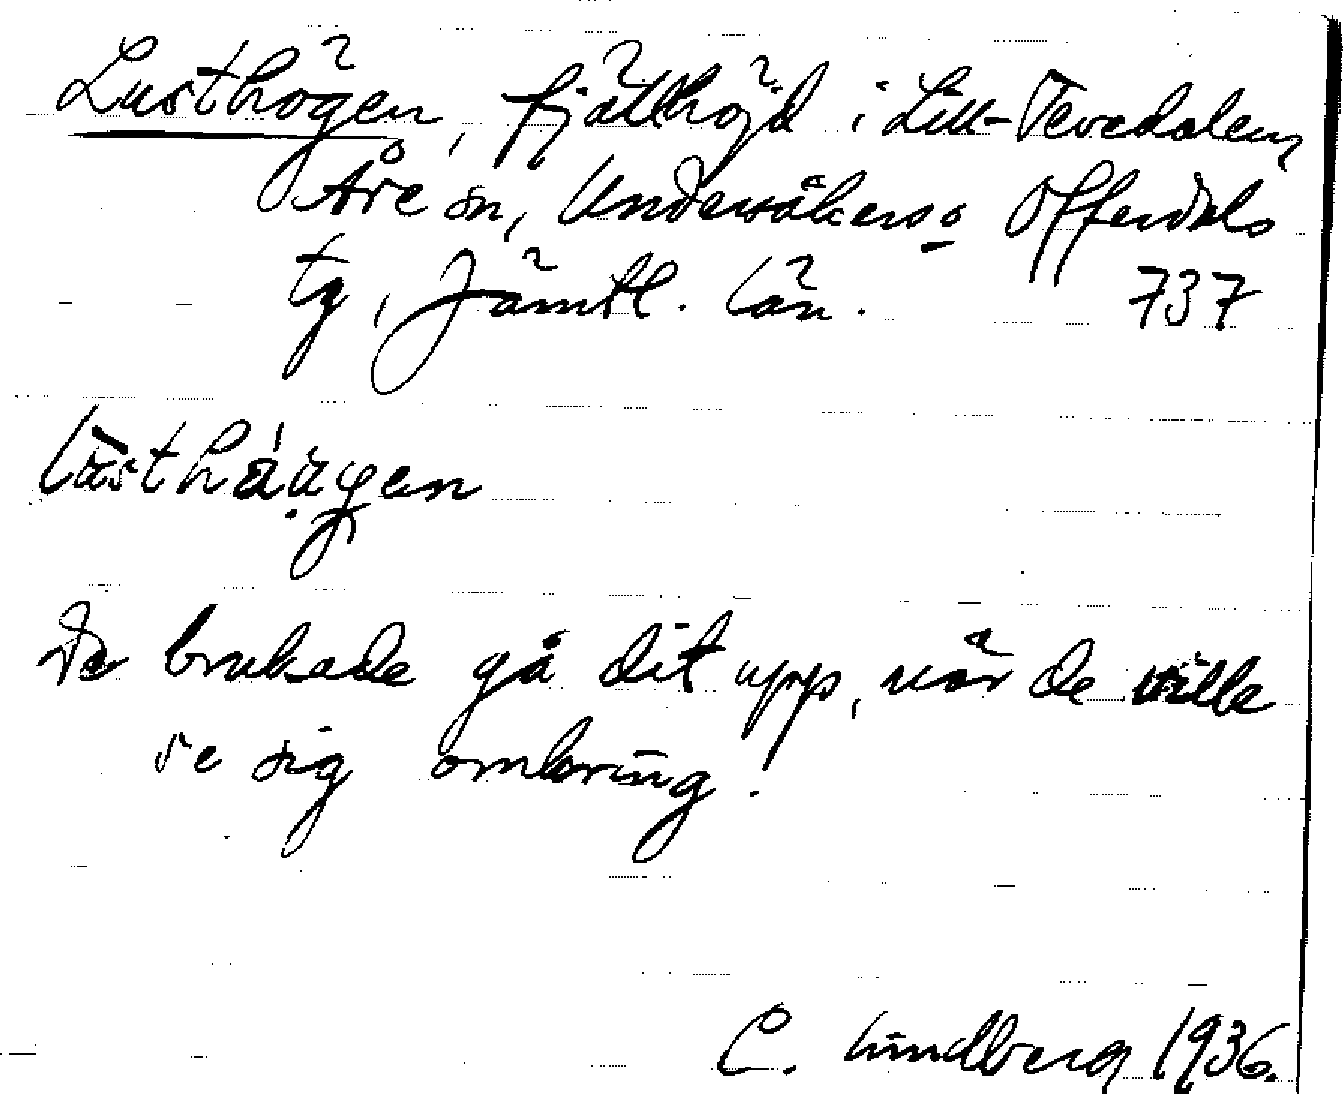 Lusthögen, fjällhöjd i Lill-Tevedalen,
Åre sn, Undersåkers o Offerdals
tg, Jämtl. län. 737
De brukade gå dit upp, när de ville
se sig omkring!
C. Lindberg 1936.